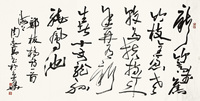 新竹高於舊
竹枝全憑老
幹為扶持
明年再有新
生者十丈龍孫
繞鳳池
鄭板橋詩一首